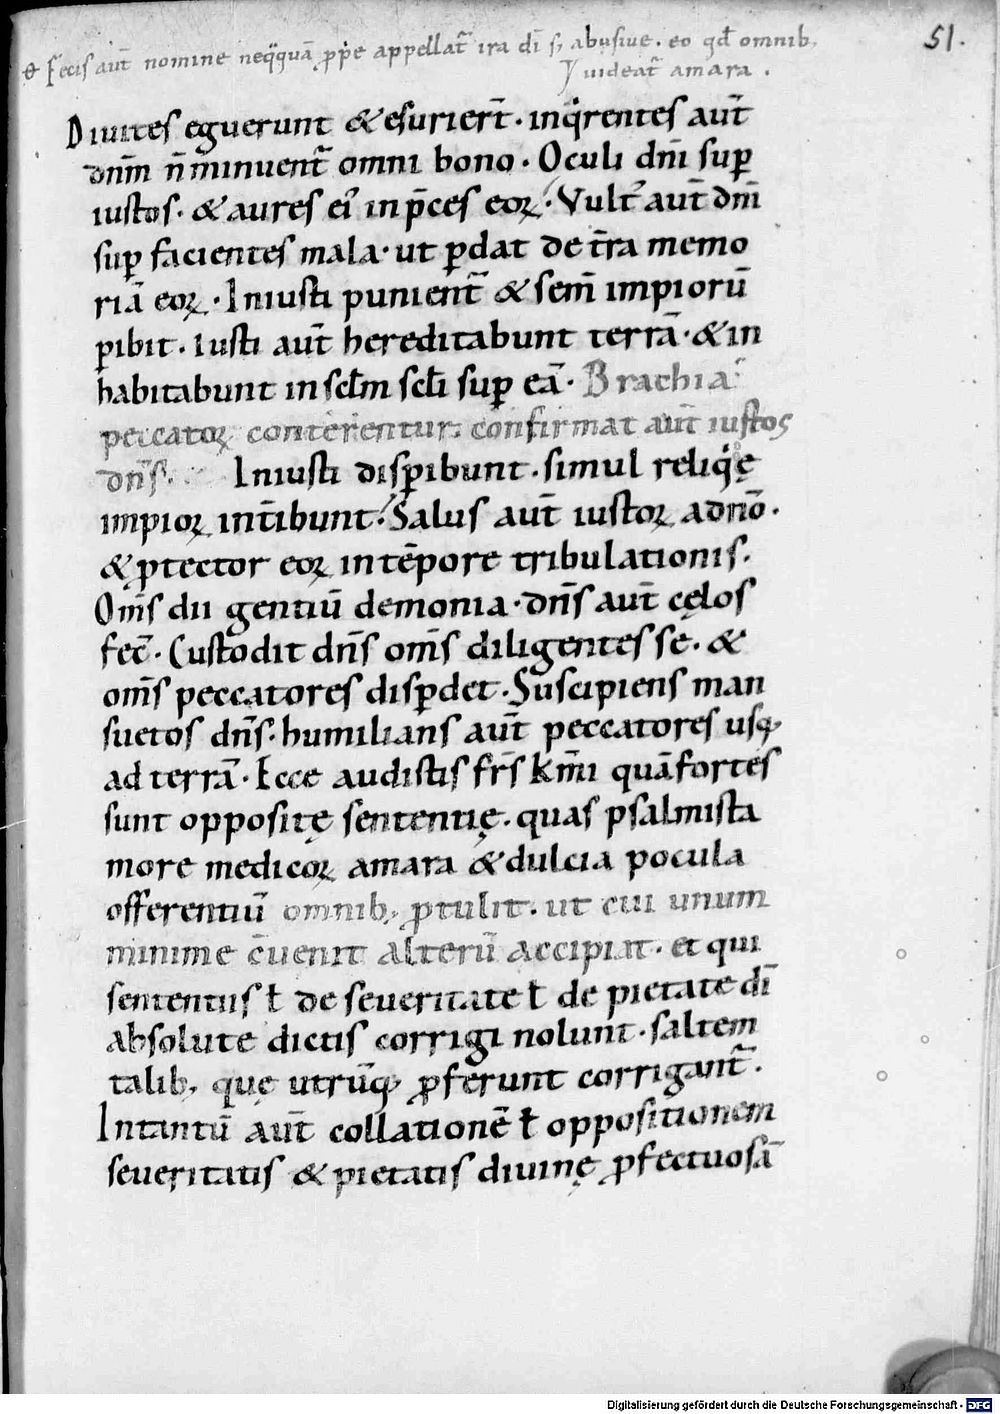 & fecis aūt nomine neq̄quā ꝓpͥe appellat̄ ira dī sꝫ abusiue. eo qđ omnibꝫ
uideat̄ amara.
51.
Diuites eguerunt & esurier̄t. inqͥrentes aūt
dn̄m n̄ minuent̄ omni bono. Oculi dn̄i suꝑ
iustos. & aures eiꝰ in p̄ces eoꝝ. Vultꝰ aūt dn̄i
suꝑ facientes mala. ut ꝑdat de t̄ra memo
riā eoꝝ. Iniusti punient̄ & sem̄ impiorū
ꝑibit. iusti aūt hereditabunt terrā. & in
habitabunt in sc̄lm sc̄li suꝑ eā. Brachia
peccatoꝝ conterentur. confirmat aūt iustos
dn̄s. Iniusti disꝑibunt. simul reliqͥę
impioꝝ int̄ibunt. Salus aūt iustoꝝ a dn̄o.
& ꝓtector eoꝝ in tēpore tribulationis.
Om̄s dii gentiū demonia. dn̄s aūt cęlos
fec̄. Custodit dn̄s om̄s diligentes se. &
om̄s peccatores disꝑdet. Suscipiens man
suetos dn̄s. humilians aūt peccatores usqꝫ
ad terrā. Ecce audistis fr̄s km̄i quā fortes
sunt oppositę sententię. quas psalmista
more medicoꝝ amara & dulcia pocula
offerentiū omnibꝫ ꝓtulit. ut cui unum
minime c̄uenit alterū accipiat. et qui
sententiis ł de seueritate ł de pietate dī
absolute dictis corrigi nolunt. saltem
talibꝫ quę utrūqꝫ ꝓferunt corrigant̄.
Intantū aūt collationē ł oppositionem
seueritatis & pietatis diuinę ꝓfectuosā
Digitalisierung gefördert durch die Deutsche Forschungsgemeinschaft - DFG